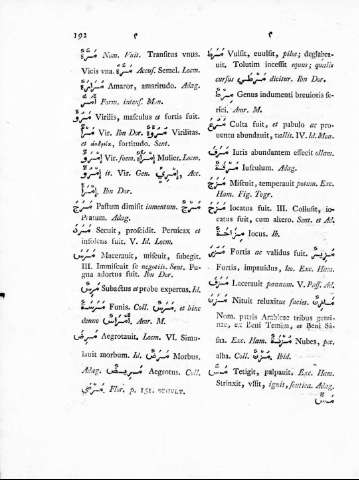 192 م م
مَرَّةٌ Nom. Vnit. Transitus vnus.
Vicis vna. مَرَّةً Accus. Semel. Locm.
مَرَارَةٌ Amaror, amaritudo. Adag.
Form. intens. Mon.
مَرُؤَ Virilis, masculus et fortis fuit.
Vir. Ibn Dor. مُرُوَّةٌ Virilitas.
et fortitudo. Sent.
Vir. foem. Mulier. Locm.
it. Vir. Gen. Acc.
Ibn Dor.
مَرَجَ Pastum dimisit iumentum. مَرْجٌ
Pratum. Adag.
Secuit, proscidit. Peruicax et
insolens fuit. V. Id. Locm.
مَرَسَ Macerauit, miscuit, subegit.
III. Immiscuit se negotiis. Sent. Pu-
gna adortus fuit. Ibn Dor.
مَرِسٌ Subactus et probe expertus, Id.
مَرَسَةٌ Funis. Coll. مَرَسٌ, et hinc
denuo أَمْرَاسٌ. Amr. M.
مَرِضَ Aegrotauit. Locm. VI. Simu-
lauit morbum. Id. مَرَضٌ Morbus.
Adag. مَرِيضٌ Aegrotus. Coll.
مَرْضَى. Flor. p. 151.
مَرَطَ Vulsit, euulsit, pilos; deglabra-
uit. Tolutim incessit equus; qualis
cursus مَرَطَى dicitur. Ibn Dor.
Genus indumenti breuioris se-
rici. Amr. M.
مَرِعَ Culta fuit, et pabulo ac pro-
uentu abundauit, vallis. IV. Id. Mon.
مَرَقَ Iuris abundantem effecit ollam.
مَرَقَةٌ Iusculum. Adag.
مَزَجَ Miscuit, temperauit potum. Exc.
Ham. Fig. Togr.
مَزَحَ Iocatus fuit. III. Collusit, io-
catus fuit, cum altero. Sent. et Ad.
مُزَاحَةٌ Iocus. Ib.
Fortis ac validus fuit.
Fortis, impauidus, leo. Exc. Ham.
مَزَقَ Lacerauit pannum. V. Pass. Ad.
مَزَنَ Nituit reluxitue facies.
Nom. patris Arabicae tribus genui-
nae, ex Beni Temim, et Beni Sa-
Exc. Ham. مُزْنَةٌ Nubes, pec.
alba. Coll. مُزْنٌ. Ibid.
مَسَّ Tetigit, palpauit. Exc. Hem.
Strinxit, vssit, ignis, sentica. Adag.
مَسٌّ